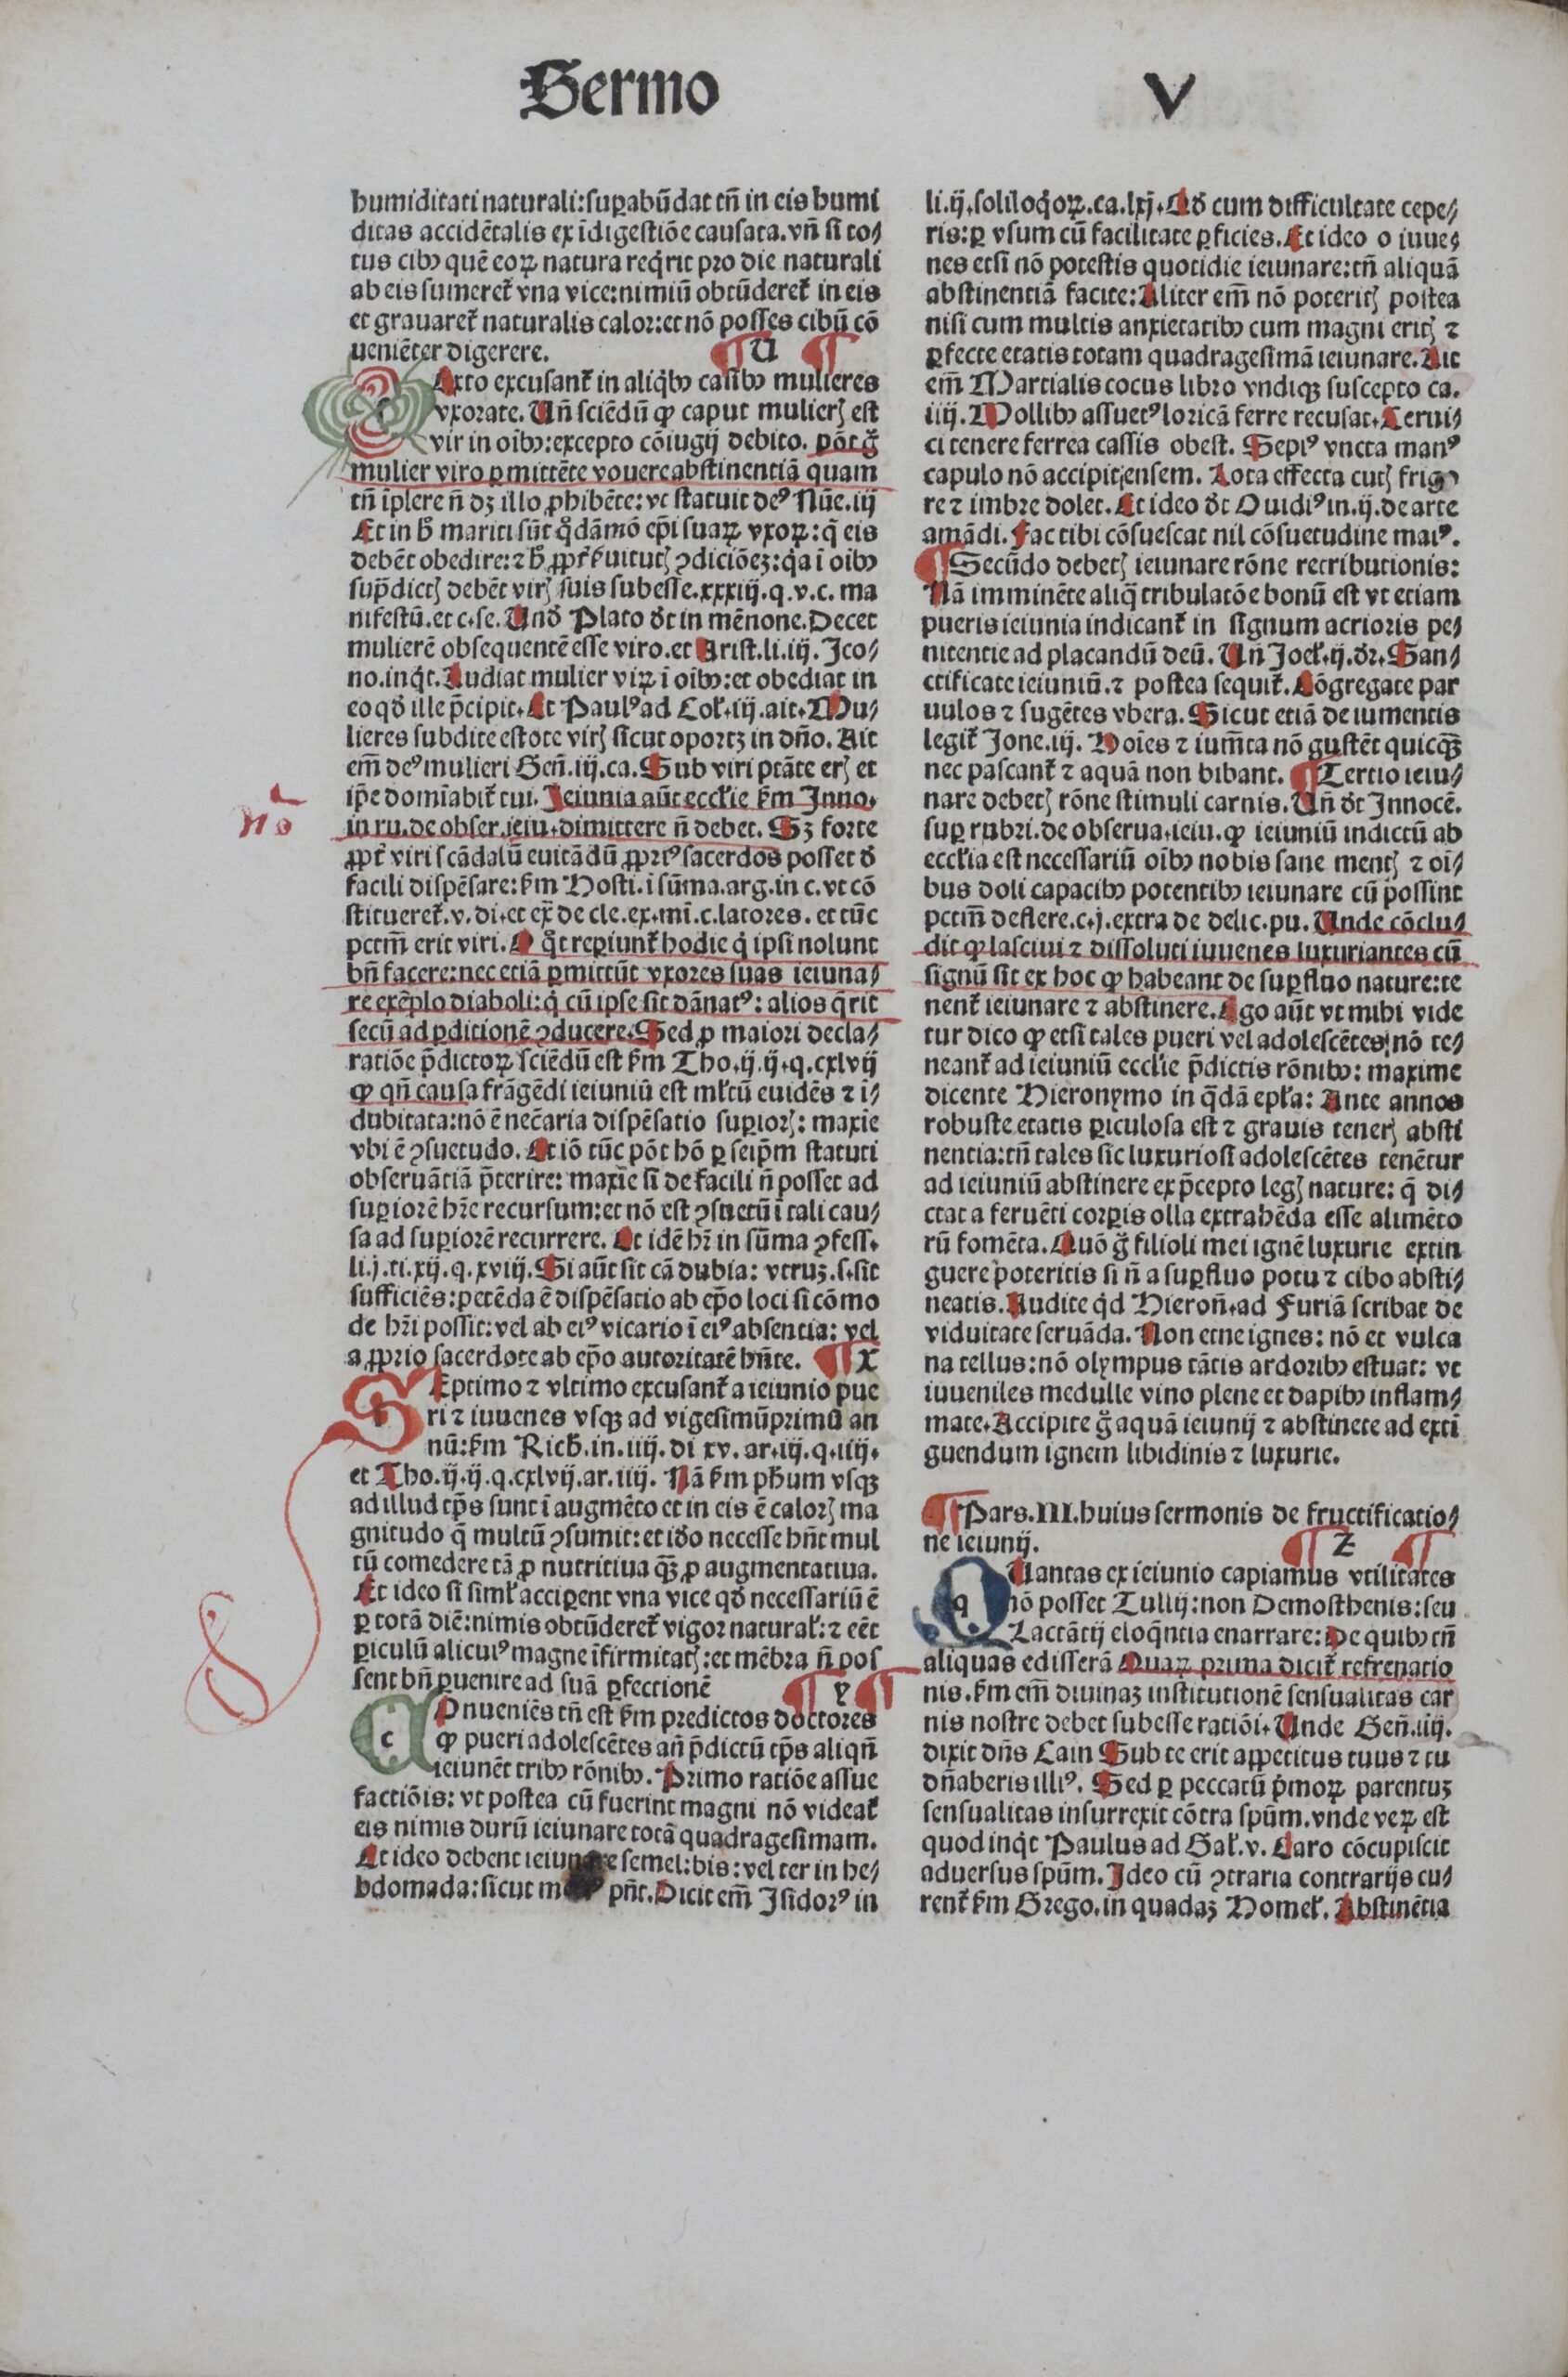 Sermo V
humiditati naturali:suꝑabūdat tñ in eis humi
ditas accidētalis ex īdigestiōe causata.vñ si to⸗
tus cibꝰ quē eoꝝ natura reqͥrit pro die naturali
ab eis sumeret᷑ vna vice:nimiū obtūderet᷑ in eis
et grauaret᷑ naturalis calor:et nō posses cibū cō
ueniēter digerere. ¶ U ¶
SExto excusant᷑ in aliqͥbꝰ casibꝰ mulieres
vxorate. Uñ sciēdū ꝙ caput mulierꝭ est
vir in oībꝰ:excepto cōiugij debito. pōt gͦ
mulier viro ꝑmittēte vouere abstinentiā quam
tñ īplere ñ dꝫ illo ꝓhibēte:vt statuit deꝰ Nūe.iij
Et in hͦ mariti sūt qͦdāmō ep̄i suaꝝ vxoꝝ:q̄ eis
debēt obedire:⁊ hͦ ꝓpt᷑ ẜuitutꝭ ꝯdiciōeꝫ:qͥa ī oībꝰ
sup̄dictꝭ debēt virꝭ suis subesse.xxxiij.q.v.c. ma
nifestū.et c.se. Unō Plato dͨt in mēnone.Decet
mulierē obsequentē esse viro.et Arist.li.iij. Ico⸗
no.inqͥt. Audiat mulier viꝝ ī oībꝰ:et obediat in
eo qđ ille p̄cipit. Et Paulꝰ ad Col̕.iij.ait. Mu⸗
lieres subdite estote virꝭ sicut oportꝫ in dn̄o. Ait
em̄ deꝰ mulieri Gen̄.iij.ca. Sub viri ptāte erꝭ et
ip̄e domīabit᷑ tui. Ieiunia aūt eccl̕ie ẜm Inno.
nō
in ru.de obser.ieiu.dimittere ñ debet. Sꝫ forte
ꝓpt᷑ viri scādalū euitādū ꝓpriꝰ sacerdos posset đ
facili dispēsare:ẜm Hosti.ī sūma.arg.in c.vt cō
stitueret᷑.v.di.et ex̄ de cle.ex.mī.c.latores. et tūc
pctm̄ erit viri. O qͦt reꝑiunt᷑ hodie qͥ ipsi nolunt
bñ facere:nec etiā ꝑmittūt vxores suas ieiuna⸗
re exēplo diaboli:qͥ cū ipse sit dānatꝰ: alios q̄rit
secū ad ꝑditionē ꝯducere. Sed ꝓ maiori decla⸗
ratiōe p̄dictoꝝ sciēdū est ẜm Tho.ij.ij.q.cxlvij
ꝙ qñ causa frāgēdi ieiuniū est ml̕tū euidēs ⁊ ī⸗
dubitata:nō ē nec̄aria dispēsatio suꝑiorꝭ: maxie
vbi ē ꝯsuetudo. Et iō tūc pōt hō ꝑ seip̄m statuti
obseruātiā p̄terire: maxie si de facili ñ posset ad
suꝑiorē hr̄e recursum:et nō est ꝯsuetū ī tali cau⸗
sa ad suꝑiorē recurrere. Et idē hr̄ in sūma ꝯfess.
li.j.ti.xij.q.xviij. Si aūt sit cā dubia: vtruꝫ.s.sit
sufficiēs:petēda ē dispēsatio ab ep̄o loci si cōmo
de hr̄i possit:vel ab eiꝰ vicario ī eiꝰ absentia: vel
a ꝓprio sacerdote ab ep̄o autoritatē hn̄te. ¶ X
SEptimo ⁊ vltimo excusant᷑ a ieiunio pue
ri ⁊ iuuenes vsqꝫ ad vigesimūprimū an
nū:ẜm Rich̄.in.iiij. di xv. ar.iij.q.iiij.
et Tho.ij.ij.q.cxlvij.ar.iiij. Nā ẜm ph̄um vsqꝫ
ad illud tp̄s sunt ī augmēto et in eis ē calorꝭ ma
gnitudo q̄ multū ꝯsumit:et iđo necesse hn̄t mul
tū comedere tā ꝓ nutritiua qꝫ̄ ꝓ augmentatiua.
Et ideo si siml̕ acciperent vna vice qđ necessariū ē
ꝑ totā diē:nimis obtūderet᷑ vigor natural̕:⁊ eēt
ꝑiculū alicuiꝰ magne īfirmitatꝭ:et mēbra ñ pos
sent bñ ꝑuenire ad suā ꝑfectionē ¶ y ¶
COnueniēs tñ est ẜm predictos doctores
ꝙ pueri adolescētes añ p̄dictū tp̄s aliqñ
ieiunēt tribꝰ rōnibꝰ. Primo ratiōe assue
factiōis: vt postea cū fuerint magni nō videat᷑
eis nimis durū ieiunare totā quadragesimam.
Et ideo debent ieiunare semel:bis:vel ter in he⸗
bdomada:sicut pn̄t.Dicit em̄ Isidorꝰ in
li.ij.soliloqͦoꝝ.ca.lxj. Qđ cum difficultate cepe⸗
ris:ꝑ vsum cū facilitate ꝑficies. Et ideo o iuue⸗
nes etsi nō potestis quotidie ieiunare:tñ aliquā
abstinentiā facite: Aliter em̄ nō poteritꝭ postea
nisi cum multis anxietatibꝰ cum magni eritꝭ ⁊
ꝑfecte etatis totam quadragesimā ieiunare. Ait
em̄ Martialis cocus libro vndiqꝫ suscepto ca.
iiij. Mollibꝰ assuetꝰ loricā ferre recusat. Cerui⸗
ci tenere ferrea cassis obest. Sepiꝰ vncta manꝰ
capulo nō accipit ensem. Lota effecta cutꝭ frigo
re ⁊ imbre dolet. Et ideo dͨt Ouidiꝰ in.ij.de arte
amādi. Fac tibi cōsuescat nil cōsuetudine maiꝰ.
¶ Secūdo debetꝭ ieiunare rōne retributionis:
Nā imminēte aliq̄ tribulatōe bonū est vt etiam
pueris ieiunia indicant᷑ in signum acrioris pe⸗
nitentie ad placandū deū. Uñ Joel̕.ij.dr̄. San⸗
ctificate ieiuniū.⁊ postea sequit᷑. Cōgregate par
uulos ⁊ sugētes vbera. Sicut etiā de iumentis
legit᷑ Jone.iij. Hoīes ⁊ ium̄ta nō gustēt quicqꝫ̄
nec pascant᷑ ⁊ aquā non bibant. ¶ Tertio ieiu⸗
nare debetꝭ rōne stimuli carnis. Uñ dͨt Innocē.
suꝑ rubri.de obserua.ieiu. ꝙ ieiuniū indictū ab
eccl̕ia est necessariū oībꝰ nobis sane mentꝭ ⁊ oī⸗
bus doli capacibꝰ potentibꝰ ieiunare cū possint
pctm̄ deflere.c.j.extra de delic.pu. Unde cōclu⸗
dit ꝙ lasciui ⁊ dissoluti iuuenes luxuriantes cū
signū sit ex hoc ꝙ habeant de suꝑfluo nature:te
nent᷑ ieiunare ⁊ abstinere. Ego aūt vt mihi vide
tur dico ꝙ etsi tales pueri vel adolescētes nō te⸗
neant᷑ ad ieiuniū eccl̕ie p̄dictis rōnibꝰ: maxime
dicente Hieronymo in q̄dā epl̕a: Ante annos
robuste etatis ꝑiculosa est ⁊ grauis tenerꝭ absti
nentia:tñ tales sic luxuriosi adolescētes tenētur
ad ieiuniū abstinere ex p̄cepto legꝭ nature: q̄ di⸗
ctat a feruēti corꝑis olla extrahēda esse alimēto
rū fomēta. Quō gͦ filioli mei ignē luxurie extin
guere poteritis si ñ a suꝑfluo potu ⁊ cibo absti⸗
neatis. Audite qͥd Hieron̄.ad Furiā scribat de
viduitate seruāda. Non etne ignes: nō et vulca
na tellus:nō olympus tātis ardoribꝰ estuat: vt
iuueniles medulle vino plene et dapibꝰ inflam⸗
mate. Accipite gͦ aquā ieiunij ⁊ abstinete ad extī
guendum ignem libidinis ⁊ luxurie.
¶ Pars.III.huius sermonis de fructificatio⸗
ne ieiunij. ¶ Z ¶
QUantas ex ieiunio capiamus vtilitates
nō posset Tullij:non Demosthenis:seu
Lactātij eloq̄ntia enarrare: De quibꝰ tñ
aliquas edisserā Quaꝝ prima dicit᷑ refrenatio
nis.ẜm em̄ diuinaꝫ institutionē sensualitas car
nis nostre debet subesse ratiōi. Unde Gen̄.iiij.
dixit dn̄s Cain Sub te erit appetitus tuus ⁊ tu
dn̄aberis illiꝰ. Sed ꝑ peccatū p̄moꝝ parentuꝫ
sensualitas insurrexit cōtra spūm.vnde veꝝ est
quod inqͥt Paulus ad Gal̕.v. Caro cōcupiscit
aduersus spūm. Ideo cū ꝯtraria contrarijs cu⸗
rent᷑ ẜm Grego.in quadaꝫ Homel̕. Abstinētia